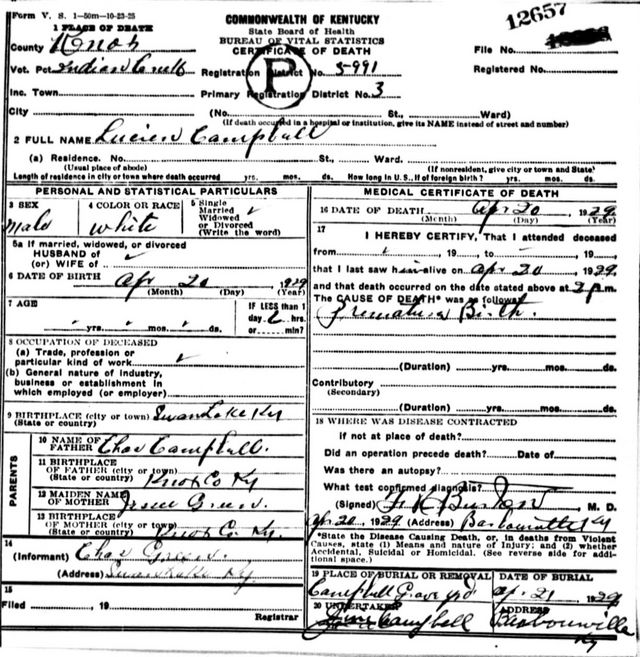 Form V. S. 1-50m-10-23-25
1 PLACE OF DEATH
COMMONWEALTH OF KENTUCKY
State Board of Health
BUREAU OF VITAL STATISTICS
CERTIFICATE OF DEATH
12657
County Knox
File No.
Vot. Pct Indian Creek
Registration District No. 5-991
Registered No.
P
Inc. Town
Primary Registration District No. 3
City (No. St., Ward)
(If death occurred in a hospital or institution, give its NAME instead of street and number)
2 FULL NAME Lucien Campbell
(a) Residence. No. St., Ward.
(Usual place of abode) (If nonresident, give city or town and State)
Length of residence in city or town where death occurred yrs. mos. ds. How long in U.S., if of foreign birth? yrs. mos. ds.
PERSONAL AND STATISTICAL PARTICULARS
3 SEX
Male
4 COLOR OR RACE
White
5 Single
Married
Widowed
or Divorced
(Write the word)
5a If married, widowed, or divorced
HUSBAND of
(or) WIFE of
6 DATE OF BIRTH Apr 20 1929
(Month) (Day) (Year)
7 AGE
yrs. mos. ds.
IF LESS than 1
day 2 hrs.
or min?
8 OCCUPATION OF DECEASED
(a) Trade, profession or
particular kind of work
(b) General nature of industry,
business or establishment in
which employed (or employer)
9 BIRTHPLACE (city or town) Swan Lake Ky
(State or country)
PARENTS
10 NAME OF
FATHER Chas Campbell
11 BIRTHPLACE
OF FATHER (city or town)
(State or country) Knox Co Ky
12 MAIDEN NAME
OF MOTHER Green
13 BIRTHPLACE
OF MOTHER (city or town)
(State or country) Knox Co. Ky.
14
(Informant) Chas Green
(Address) Swan Lake Ky
15
Filed , 19
Registrar
MEDICAL CERTIFICATE OF DEATH
16 DATE OF DEATH Apr 20 1929
(Month) (Day) (Year)
17
I HEREBY CERTIFY, That I attended deceased
from , 19 to , 19
that I last saw him alive on Apr 20 1929
and that death occurred on the date stated above at 2 p m.
The CAUSE OF DEATH* was as follows:
Premature Birth.
(Duration) yrs. mos. ds.
Contributory
(Secondary)
(Duration) yrs. mos. ds.
18 WHERE WAS DISEASE CONTRACTED
if not at place of death?
Did an operation precede death? Date of
Was there an autopsy?
What test confirmed diagnosis?
(Signed) F. K. Burton M. D.
Apr 20 1929 (Address) Barbourville Ky
*State the Disease Causing Death, or, in deaths from Violent
Causes, state (1) Means and nature of Injury; and (2) whether
Accidental, Suicidal or Homicidal. (See reverse side for addi-
tional space.)
19 PLACE OF BURIAL OR REMOVAL
Campbell Grave yd
DATE OF BURIAL
Apr 21 1929
20 UNDERTAKER
Campbell
ADDRESS
Barbourville
Ky